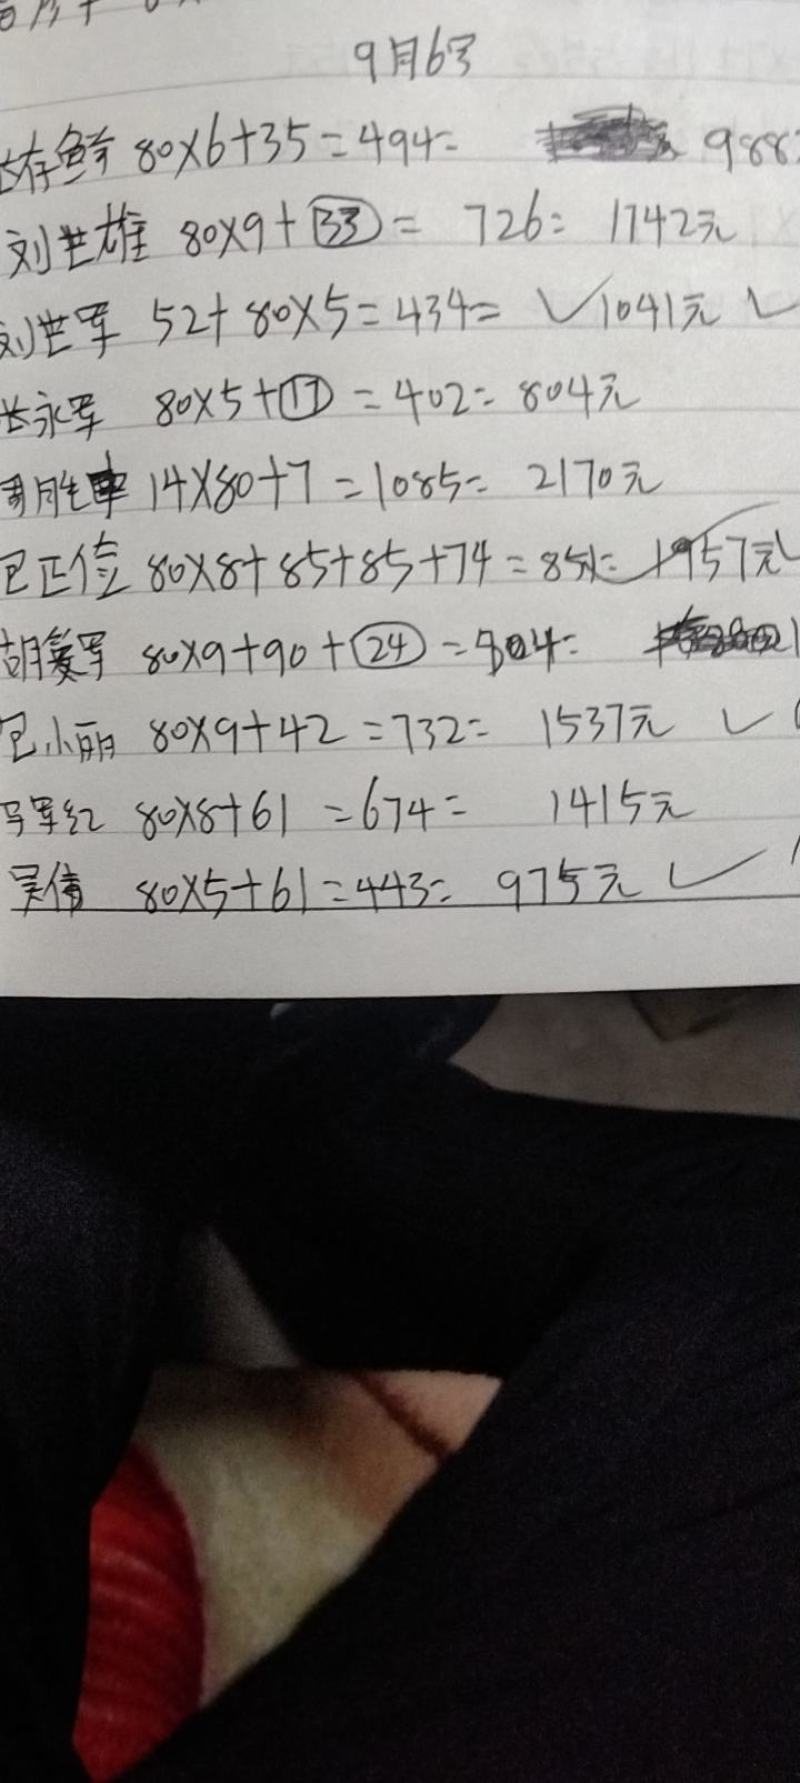 9月6号
存鲜 80×6+35=494= 988
刘世雄 80×9+33= 726= 1742元
刘世军 52+80×5=434= ✓1041元 ✓
永军 80×5+17=402= 804元
周胜 14×80+7=1085= 2170元
包正俭 80×8+85+85+74=851= 1957元
胡爱军 80×9+90+24=904=
包小丽 80×9+42=732= 1537元 ✓
马军红 80×8+61=674= 1415元
吴倩 80×5+61=443= 975元 ✓